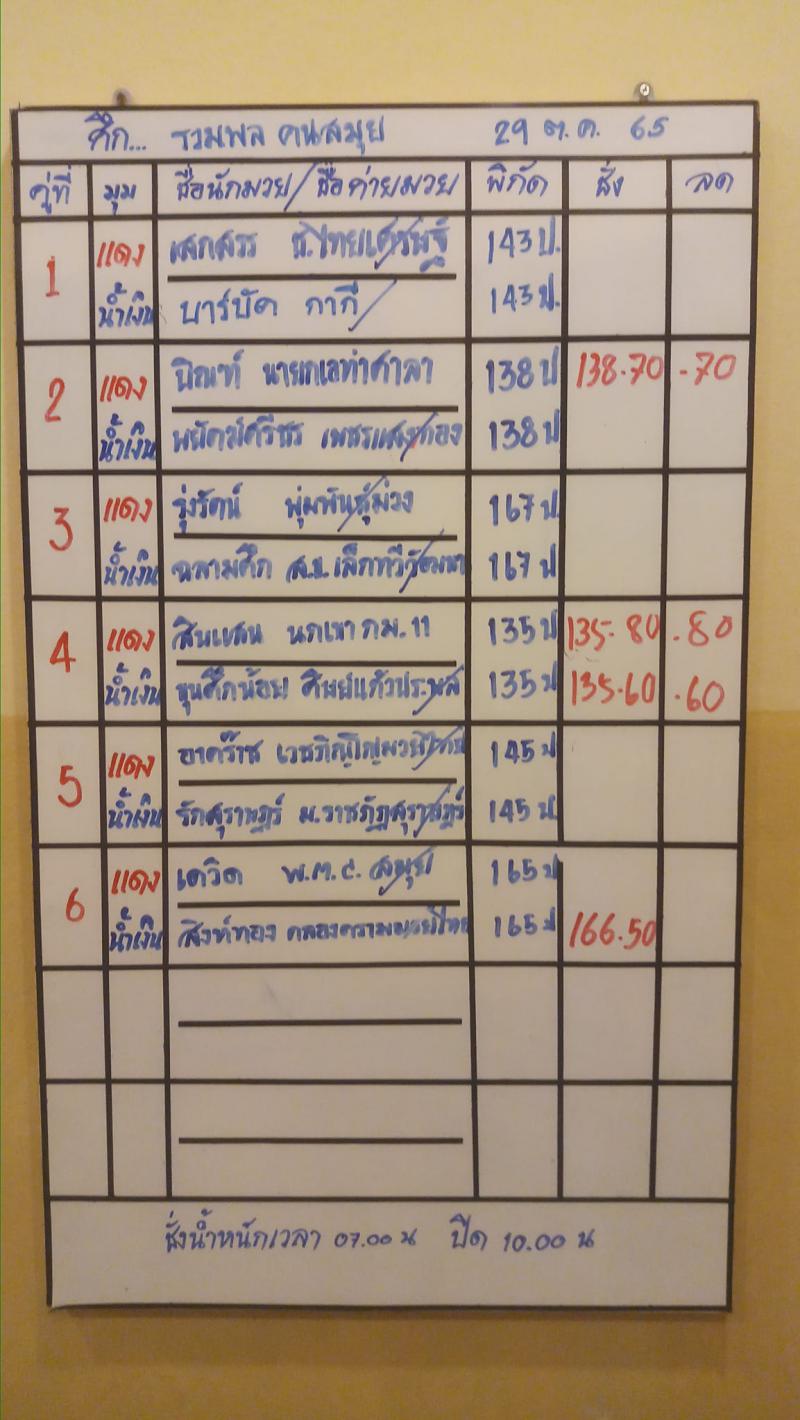 ศึก... รวมพล คนสมุย 29 ต.ค. 65
คู่ที่ มุม ชื่อนักมวย/ชื่อค่ายมวย พิกัด ชั่ง ลด
1 แดง เสกสรร ช.ไทยเศรษฐี 143 ป.
น้ำเงิน บาร์บัด กากี 143 ป.
2 แดง นายกเอท่าศาลา 138 ป 138.70 .70
น้ำเงิน พยัคฆ์ศรีชร เพชรแสงทอง 138 ป
3 แดง รุ่งรัตน์ พุ่มพันธุ์ม่วง 167 ป.
น้ำเงิน ฉลามศึก ส.ข.เล็กทวี 167 ป
4 แดง สินแสน นกเขา กม.11 135 ป 135.80 .80
น้ำเงิน ขุนศึกน้อย ศิษย์แก้วประพล 135 ป 135.60 .60
5 แดง อาคร๊าช เวชภิญโญมวยไทย 145 ป
น้ำเงิน รักสุราษฎร์ ม.ราชภัฏสุราษฎร์ 145 ป.
6 แดง เดวิด พ.ต.ต. สมุย 165 ป
น้ำเงิน สิงห์ทอง คลองครามมวยไทย 165 ป 166.50
ชั่งน้ำหนักเวลา 07.00 น ปิด 10.00 น